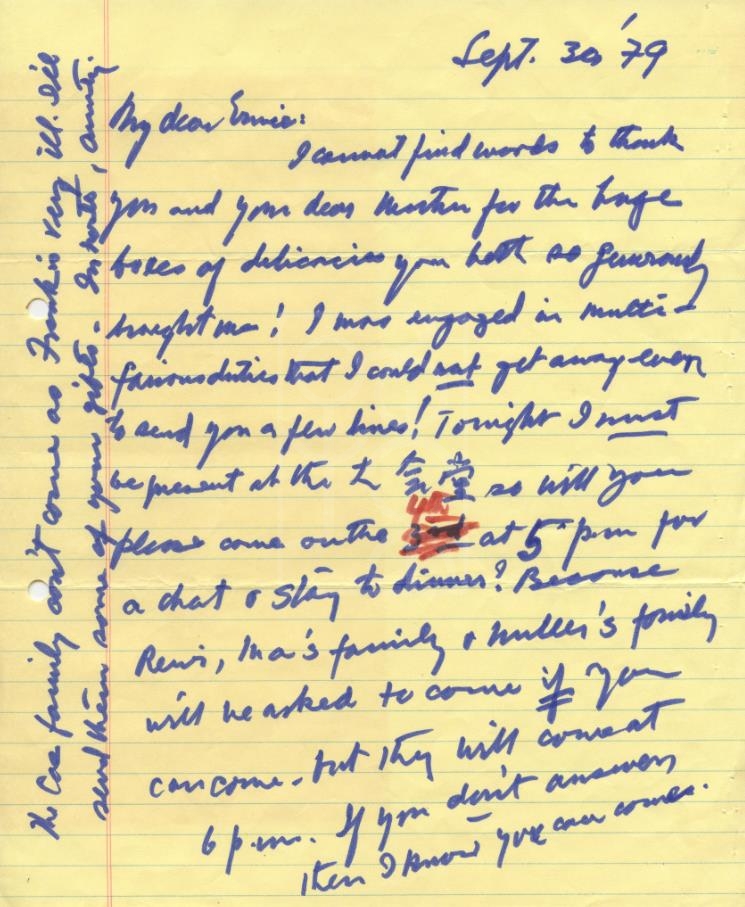 Sept. 30 '79
My dear Ernie:
I cannot find words to thank
you and your dear Mother for the huge
boxes of delicacies you both so generously
brought me! I was engaged in multi-
farious duties that I could not get away even
to send you a few lines! Tonight I must
be present at the so will you
please come on the 4th 3rd at 5 p.m for
a chat & stay to dinner? Because
Rewi, Ma's family & Muller's family
will be asked to come if you
can come. but they will come at
6 p.m. If you don't answer
then I know you can come.
The Coe family can't come as Frank is very ill. I'll
send them some of your gifts.